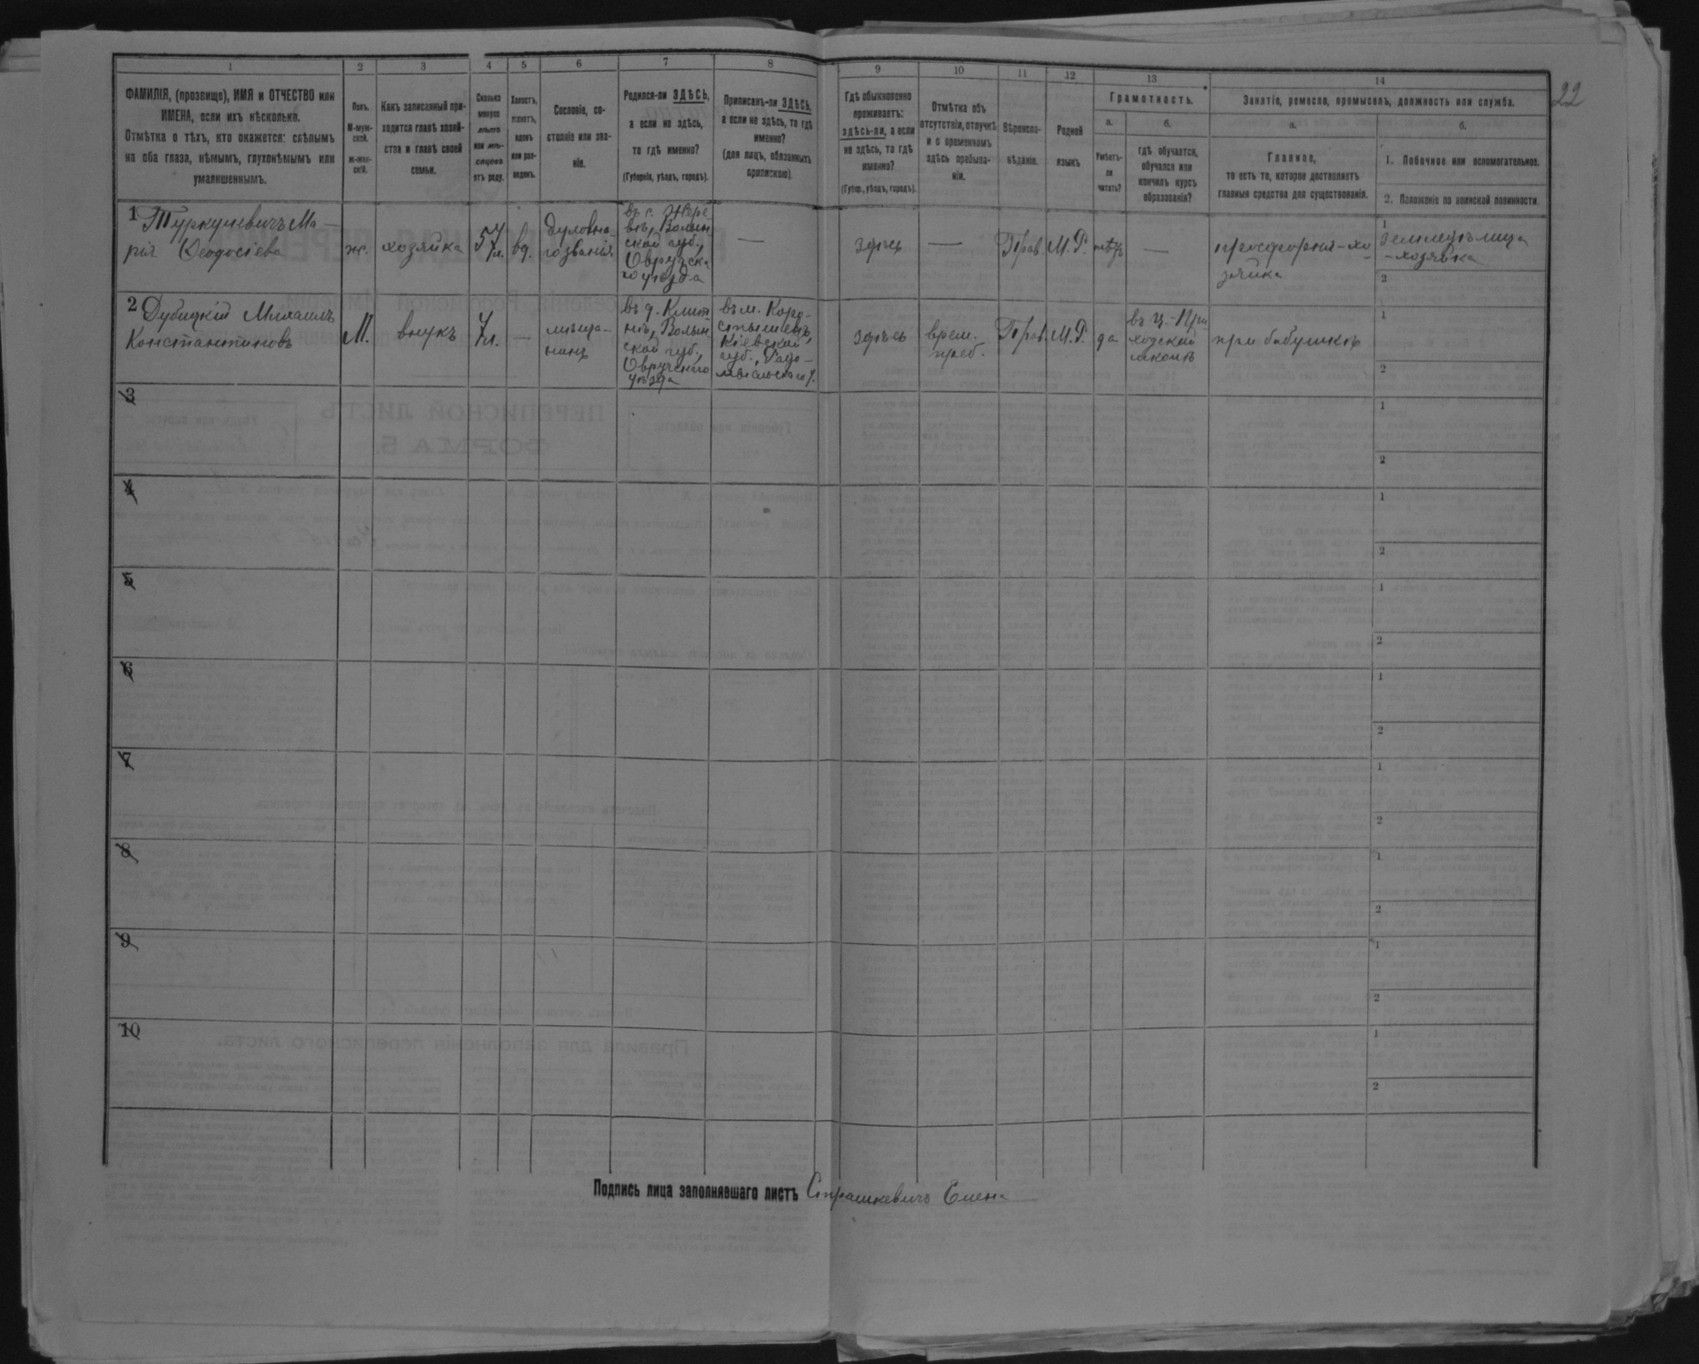 22
1 2 3 4 5 6 7 8 9 10 11 12 13 14
ФАМИЛІЯ, (прозвище), ИМЯ и ОТЧЕСТВО или
ИМЕНА, если ихъ нѣсколько.
Отмѣтка о тѣхъ, кто окажется: слѣпымъ
на оба глаза, нѣмымъ, глухонѣмымъ или
умалишеннымъ.
Полъ.
М-муж-
ской.
ж-жен-
скій.
Какъ записанный при-
ходится главѣ хозяй-
ства и главѣ своей
семьи.
Сколько
минуло
лѣтъ
или мѣ-
сяцевъ
отъ роду.
Холостъ,
женатъ,
вдовъ
или раз-
веденъ.
Сословіе, со-
стояніе или зва-
ніе.
Родился-ли ЗДѢСЬ,
а если не здѣсь,
то гдѣ именно?
(Губернія, уѣздъ, городъ).
Приписанъ-ли ЗДѢСЬ,
а если не здѣсь, то гдѣ
именно?
(для лицъ, обязанныхъ
припискою)
Гдѣ обыкновенно
проживаетъ:
здѣсь-ли, а если
не здѣсь, то гдѣ
именно?
(Губер., уѣздъ, городъ).
Отмѣтка объ
отсутствіи, отлучкѣ
и о временномъ
здѣсь пребыва-
ніи.
Вѣроиспо-
вѣданіе.
Родной
языкъ
Грамотность.
а.
Умѣетъ-
ли
читать?
б.
гдѣ обучается,
обучался или
кончилъ курсъ
образованія?
Занятіе, ремесло, промыселъ, должность или служба.
а.
Главное,
то есть то, которое доставляетъ
главныя средства для существованія.
б.
1. Побочное или вспомогательное.
2. Положеніе по воинской повинности.
1 Туркуневичъ Ма-
рія Ѳеодосіева
ж.
хозяйка
57
л.
вд.
духовна-
го званія
Волын
ской губ.,
Овручска
го уѣзда
—
здѣсь
—
Прав.
М.Р.
нѣтъ
—
хо
зяйка
1
земледѣлица
-хозяйка
2
2 Дубицкій Михаилъ
Константиновъ
М.
внукъ
7
л.
—
мѣща-
нинъ
Волын
ской губ.,
Овручскаго
уѣзда
въ м. Коро-
стышевѣ,
Кіевской
губ., Радо-
мысльска у.
здѣсь
врем.
преб.
Прав.
М.Р.
да
въ ц.-При
ходской
школѣ
при бабушкѣ
1
2
3
1
2
4
1
2
5
1
2
6
1
2
7
1
2
8
1
2
9
1
2
10
1
2
Подпись лица заполнявшаго листъ Страшкевичъ Елена